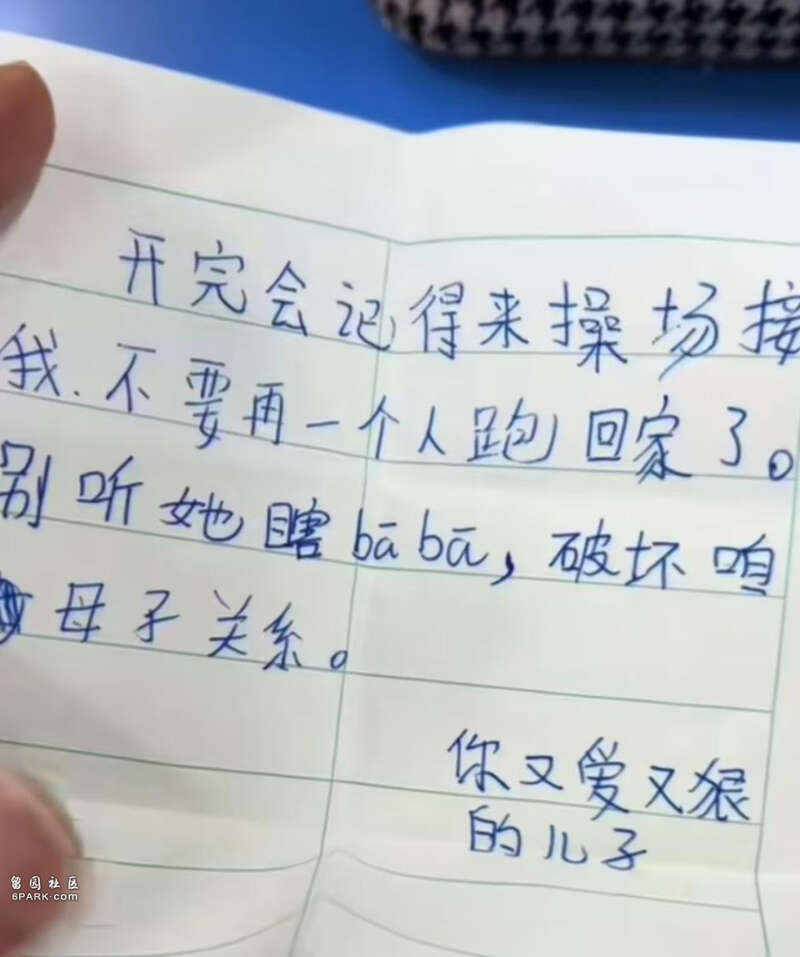 开完会记得来操场接
我.不要再一个人跑回家了。
别听她瞎bābā,破坏咱
母子关系。
你又爱又狠
的儿子
留园社区
6PARK.com